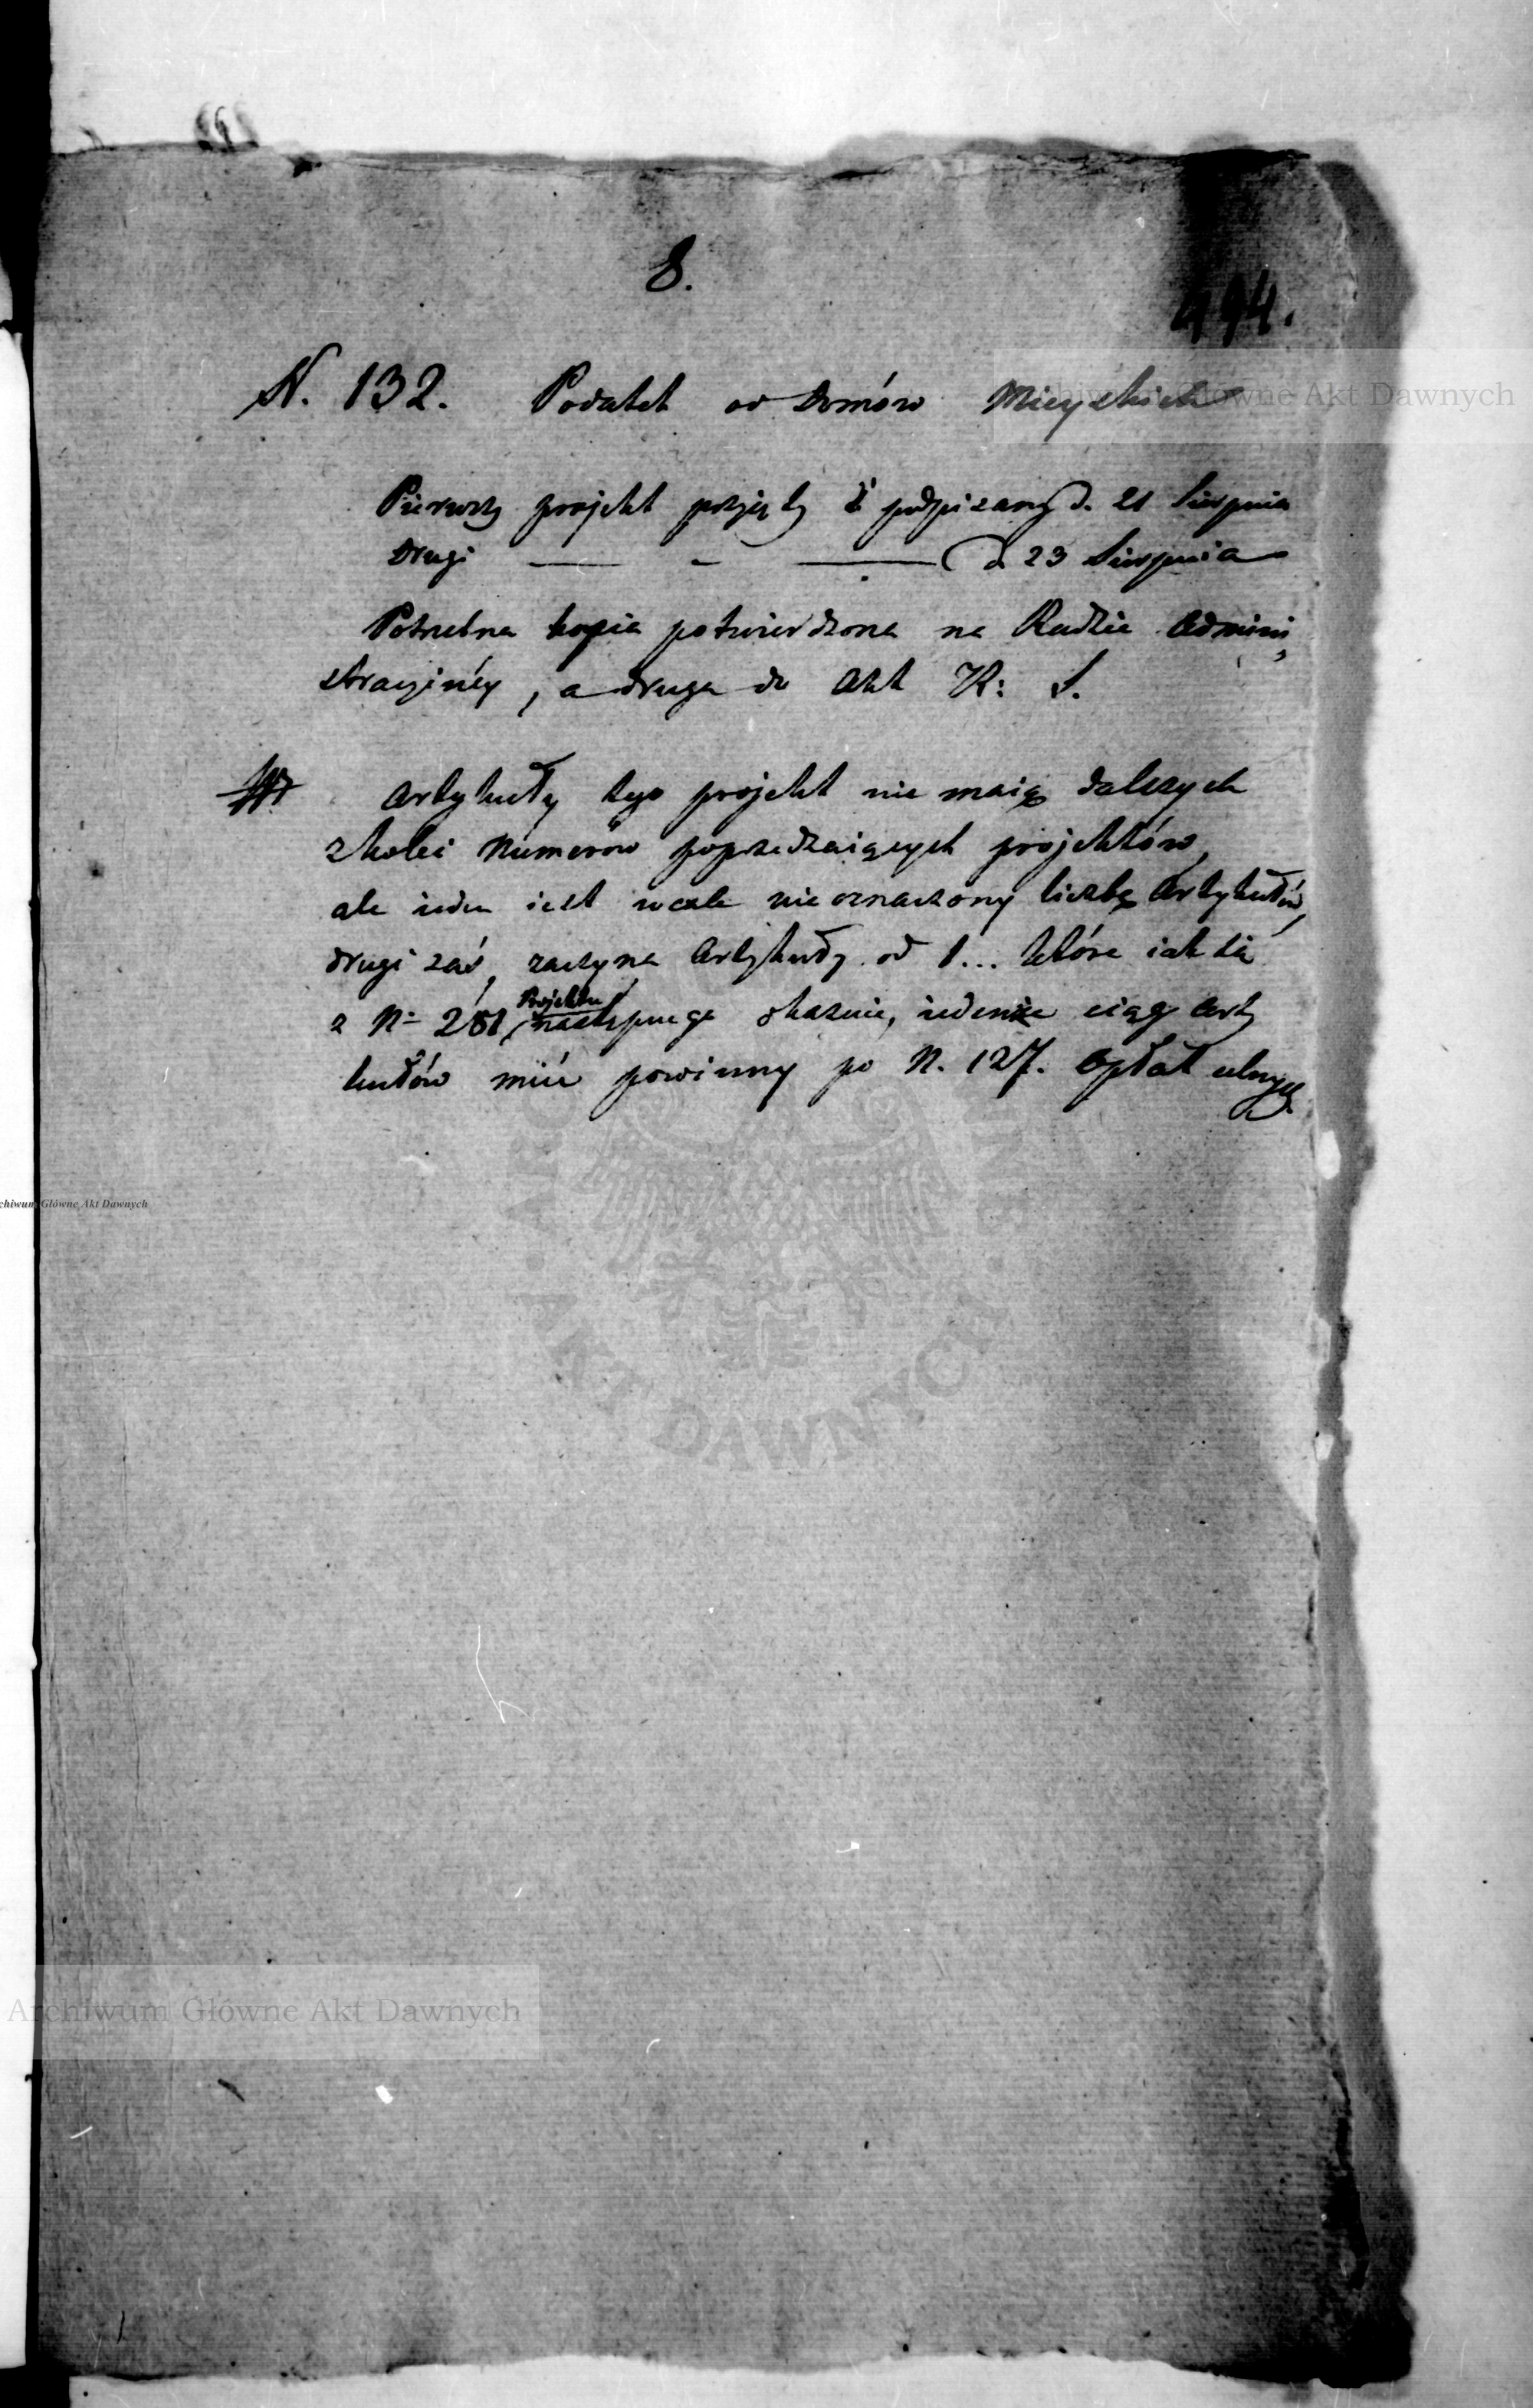 8.
494.
N. 132. Podatek od domów Mieyskich
Pierwszy projekt przyięty i podpisany d. 21 Sierpnia
Drugi — - — d 23 Sierpnia
Potrzebna kopia potwierdzona na Radzie Admini
stracyinéy, a druga do Akt R: S.
Artykuły tego projekt nie maią dalszych
z kolei Numerów poprzedzaiących projektów,
ale ieden iest wcale nie oznaczony liczbą Artykułów,
drugi zaś, zaczyna Artykuły od 1... które iak się
Projektu
z N= 281, następnego okazuie, ieden ciąg arty
kułów mieć powinny po N. 127. Opłat
Archiwum Główne Akt Dawnych
chiwum Główne Akt Dawnych
AKT DAWNYCH
Archiwum Główne Akt Dawnych